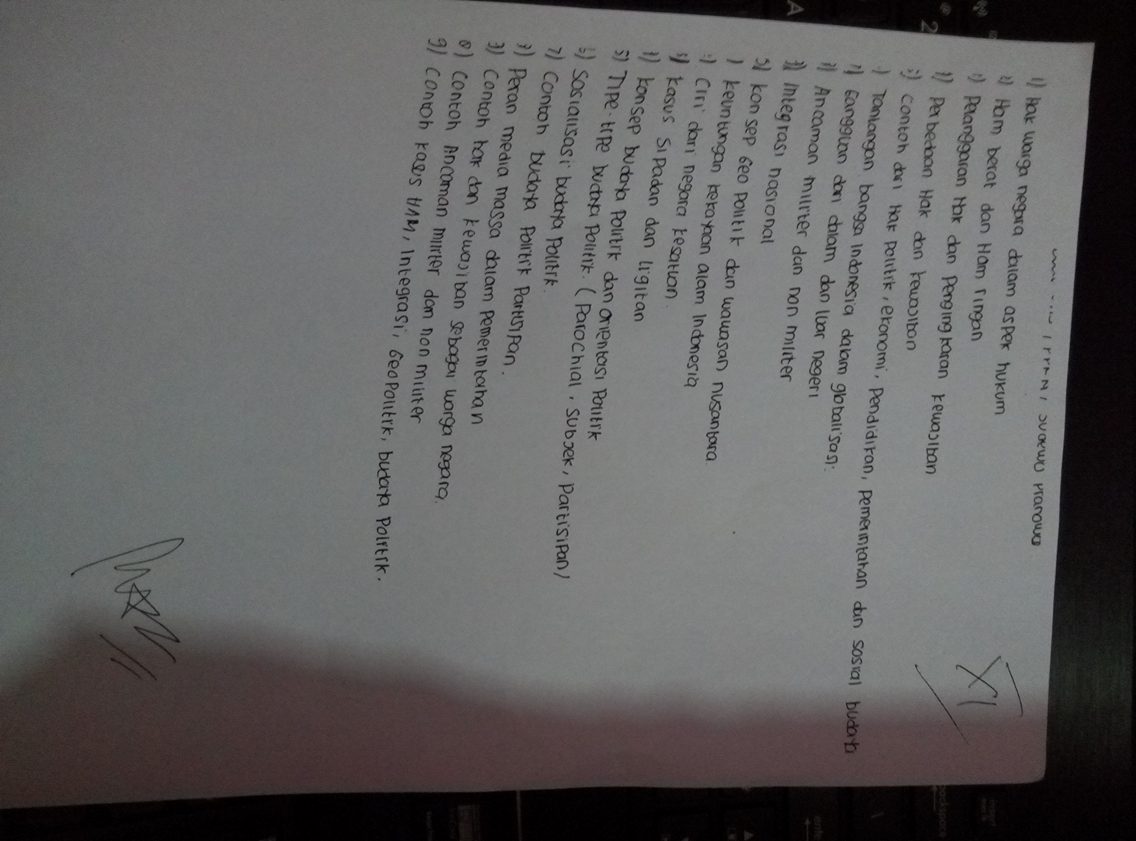 SUGEWO PRANOWO
XI
1) Hak warga negara dalam aspek hukum
2) Ham berat dan Ham ringan
Pelanggaran Hak dan pengingkaran kewajiban
Perbedaan Hak dan kewajiban
Contoh dari Hak politik, ekonomi, Pendidikan, Pemerintahan dan sosial budaya
Tantangan bangsa indonesia dalam globalisasi.
Gangguan dari dalam dan luar negeri
Ancaman militer dan non militer
Integrasi nasional
konsep Geo politik dan wawasan nusantara
keuntungan kekayaan alam Indonesia
Ciri dari negara kesatuan
kasus sipadan dan ligitan
konsep budaya politik dan orientasi Politik
5) Tipe-tipe budaya Politik. (Parochial, subjek, Partisipan)
6) Sosialisasi budaya Politik
7) Contoh budaya Politik Partisipan.
Peran media massa dalam pemerintahan
Contoh hak dan kewajiban sebagai warga negara.
8) Contoh Ancaman militer dan non militer
9) Contoh kasus HAM, Integrasi, Geopolitik, budaya Politik.